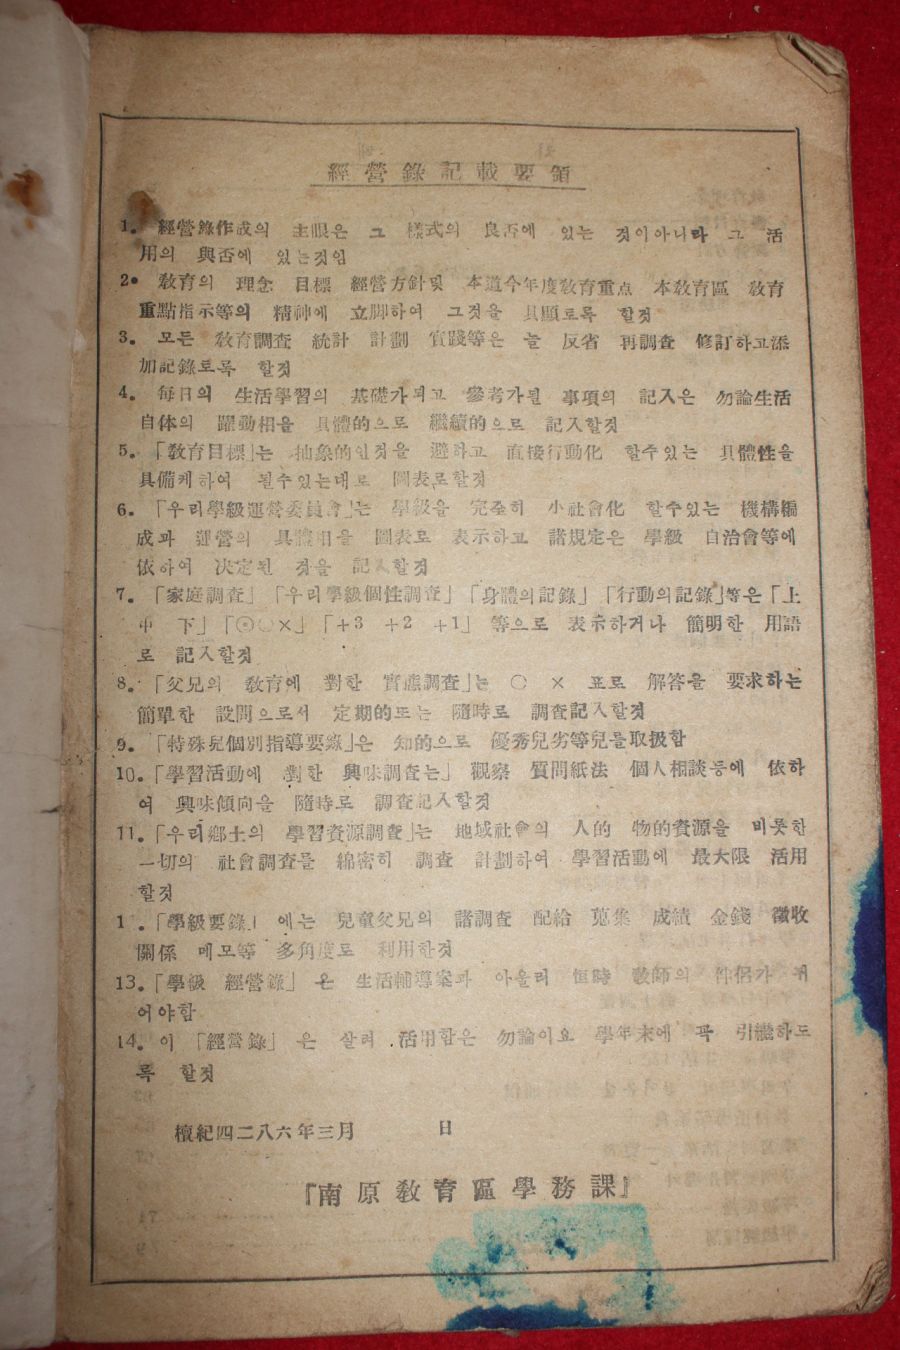 經營錄記載要領
1. 經營錄作成의 主眼은 그 樣式의 良否에 있는 것이아니라 그 活
用의 與否에 있는것임
2. 敎育의 理念 目標 經營方針및 本道今年度敎育重点 本敎育區 敎育
重點指示等의 精神에 立脚하여 그것을 具顯토록 할것
3. 모든 敎育調査 統計 計劃 實踐等은 늘 反省 再調査 修訂하고添
加記錄토록 할것
4. 每日의 生活學習의 基礎가되고 參考가될 事項의 記入은 勿論生活
自体의 躍動相을 具體的으로 繼續的으로 記入할것
5. 「敎育目標」는 抽象的인것을 避하고 直接行動化 할수있는 具體性을
具備케하여 될수있는대로 圖表로할것
6. 「우리學級運營委員會」는 學級을 完全히 小社會化 할수있는 機構編
成과 運營의 具體相을 圖表로 表示하고 諸規定은 學級 自治會等에
依하여 決定된 것을 記入할것
7. 「家庭調査」 「우리學級個性調査」 「身體의記錄」 「行動의記錄」等은「上
中 下」「⊙○×」「+3 +2 +1」 等으로 表示하거나 簡明한 用語
로 記入할것
8. 「父兄의 敎育에 對한 實態調査」는 ○ × 표로 解答을 要求하는
簡單한 設問으로서 定期的또는 隨時로 調査記入할것
9. 「特殊兒個別指導要錄」은 知的으로 優秀兒劣等兒를取扱함
10. 「學習活動에 對한 興味調査는」 觀察 質問紙法 個人相談등에 依하
여 興味傾向을 隨時로 調査記入할것
11. 「우리鄕土의 學習資源調査」는 地域社會의 人的 物的資源을 비롯한
一切의 社會調査를 綿密히 調査 計劃하여 學習活動에 最大限 活用
할것
1 . 「學級要錄」 에는 兒童父兄의 諸調査 配給 蒐集 成績 金錢 徵收
關係 메모等 多角度로 利用한것
13. 「學級 經營錄」 은 生活輔導案과 아울러 恒時 敎師의 伴侶가 되
어야함
14. 이 「經營錄」 은 살려 活用함은 勿論이요 學年末에 꼭 引繼하도
록 할것
檀紀四二八六年三月 日
『南原敎育區學務課』